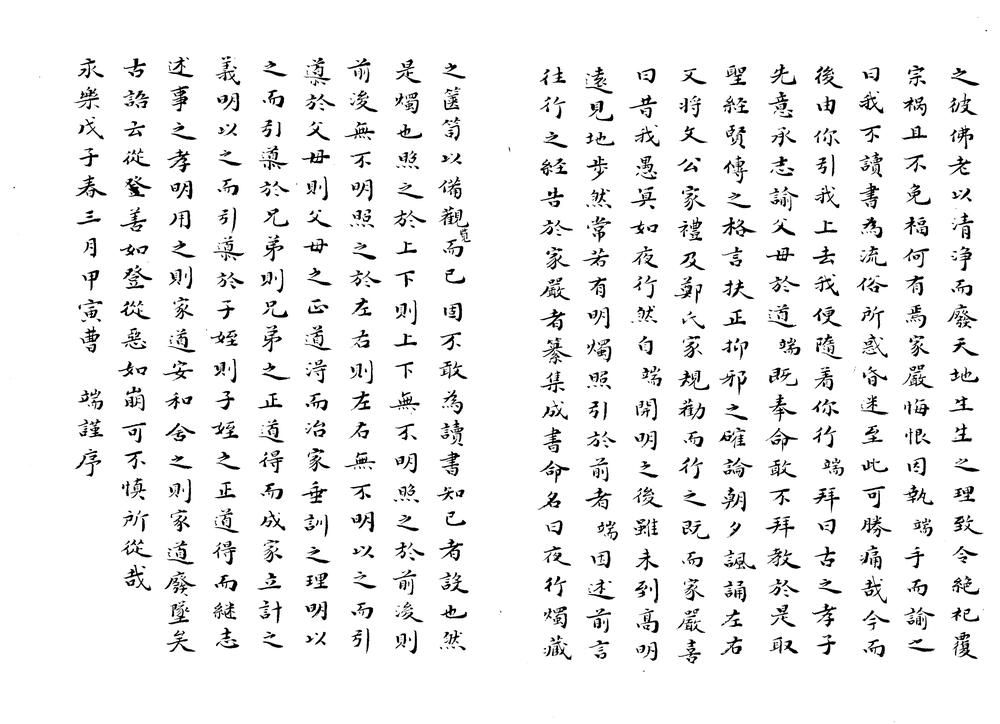 之彼佛老以清浄而廢天地生生之理致令絶祀覆
宗禍且不免福何有焉家嚴悔恨因執端手而諭之
曰我不讀書為流俗所惑昏迷至此可勝痛哉今而
後由你引我上去我便隨着你行端拜曰古之孝子
先意承志諭父母於道端既奉命敢不拜教於是取
聖經賢傳之格言扶正抑邪之確論朝夕諷誦左右
又將文公家禮及鄭氏家規勸而行之既而家嚴喜
曰昔我愚冥如夜行然自端開明之後雖未到高明
遠見地步然常若有明燭照引於前者端因述前言
往行之經告於家嚴者纂集成書命名曰夜行燭藏
之篋笥以備觀覽而已固不敢為讀書知己者設也然
是燭也照之於上下則上下無不明照之於前後則
前後無不明照之於左右則左右無不明以之而引
導於父母則父母之正道得而治家垂訓之理明以
之而引導於兄弟則兄弟之正道得而成家立計之
義明以之而引導於子姪則子姪之正道得而継志
述事之孝明用之則家道安和舍之則家道廢墜矣
古語云從善如登從惡如崩可不慎所從哉
永樂戊子春三月甲寅曹端謹序